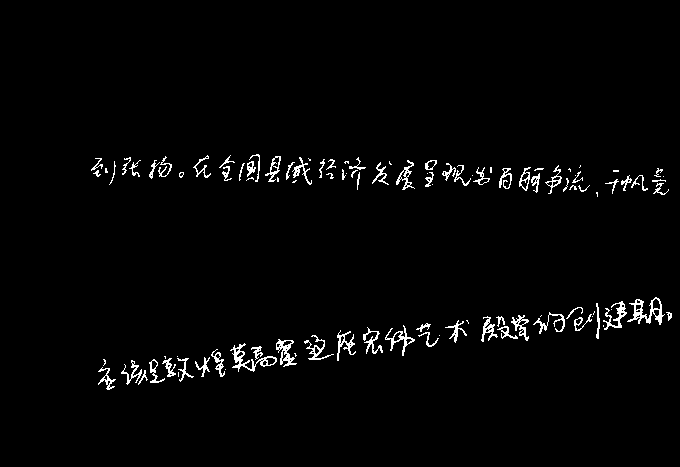 到张扬。在全国县域经济发展呈现出百舸争流、千帆竞
应该是敦煌莫高窟这座宏伟艺术殿堂的创建期。